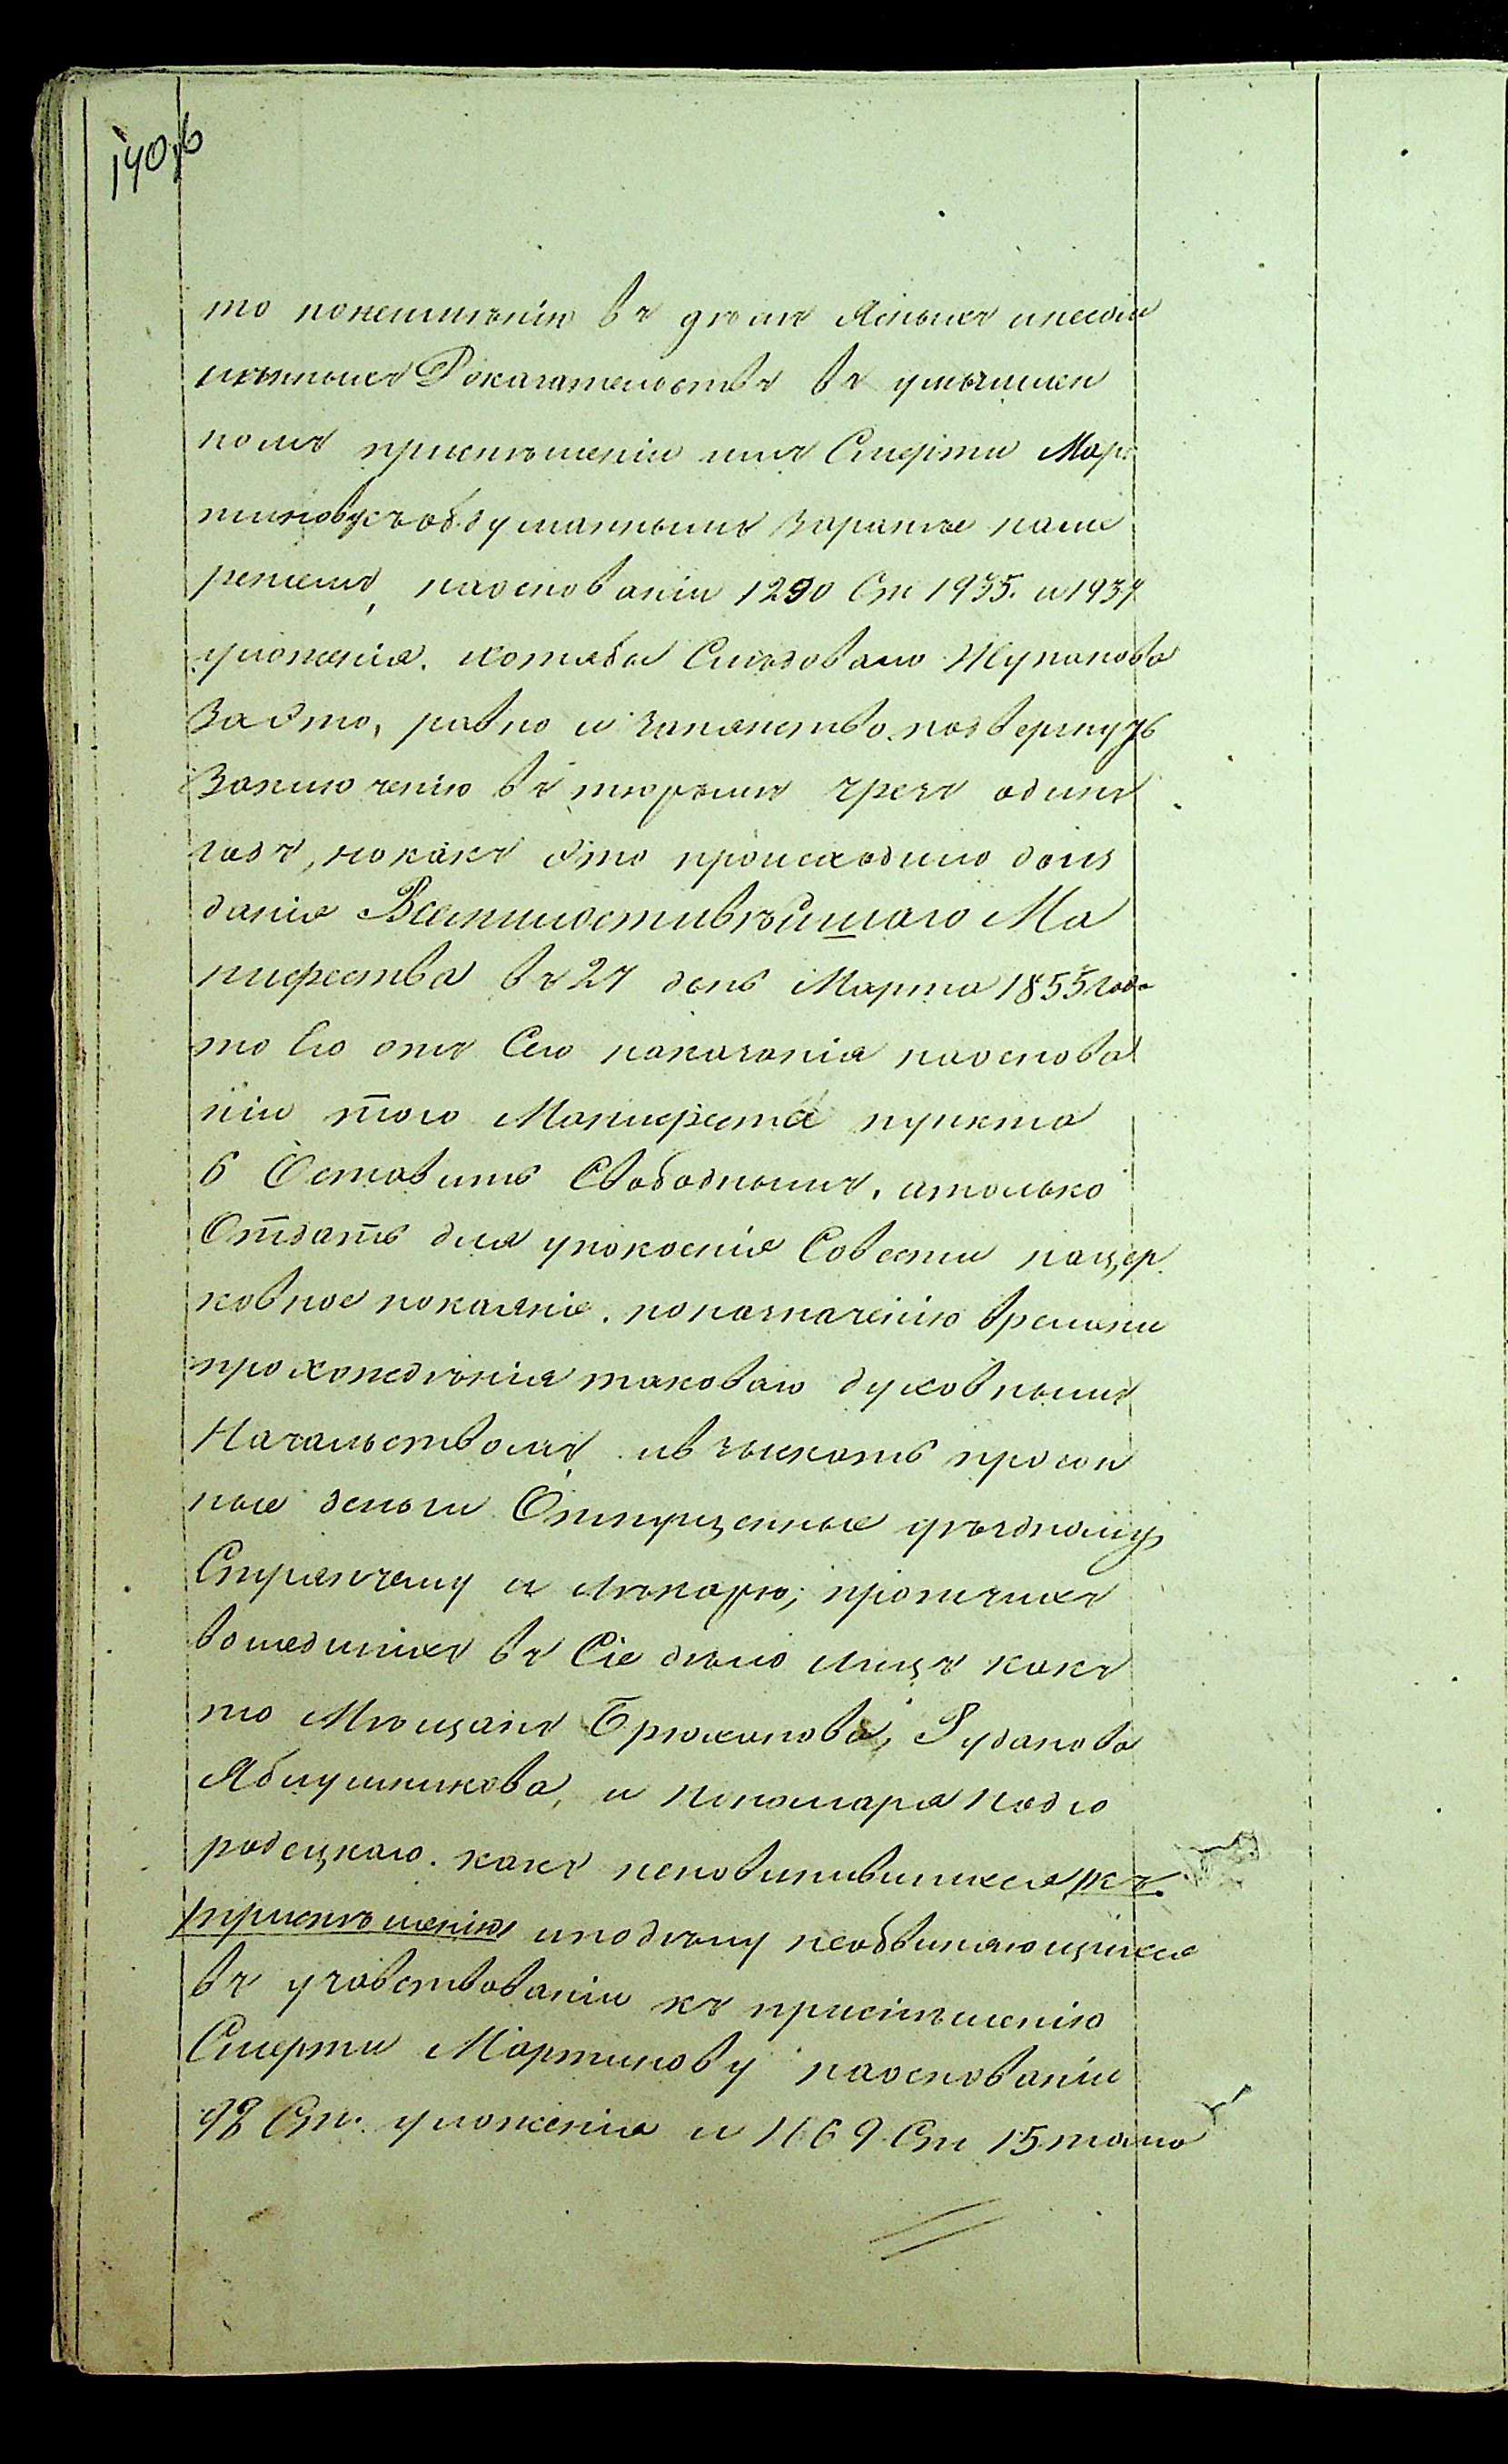 140об
то понеимѣнію въ дѣлѣ Ясныхъ инесом
нѣнныхъ Доказательствъ въ умышлен
номъ приспѣшеніи имъ Смерти Мар
тиновусъ обдуманнымъ заранѣе наме
реніемъ, наоснованіи 1290 Ст 1935. и 1937
уложенія. хотябы Слѣдовало Жупанова
За Это, равно и запянство подвергнуть
Заключенію въ тюрьмѣ чрезъ одинъ
годъ, нокакъ Это происходило доиз
данія Всемилостивѣйшаго Ма
нифества въ 27 день Марта 1855 Года
то Его отъ Сего наказанія наоснова
ніи того Манифеста пункта
6 Оставить Свободнымъ, атолько
Отдать для упокоенія Совести нацер
ковное покаяніе. поназначенію времени
прохожедѣнія таковаго духовнымъ
Начальствомъ. ивзыскать прогон
ные деньги Отпущенные уѣздному
Стряпчему и Лѣкарю; протчихъ
вошедшихъ въ Сіе дѣло лицъ какъ
то Мѣщанъ Брюханова, Рудакова
Яблушникова, и пономаря Подго
родецкаго. какъ неповинившихся къ
приспѣшенію иподѣлу необвиняющихся
въ учавствованіи къ приспѣшенію
Смерти Мартинову наоснованіи
98 Ст. уложенія и 1169 Ст 15 тома